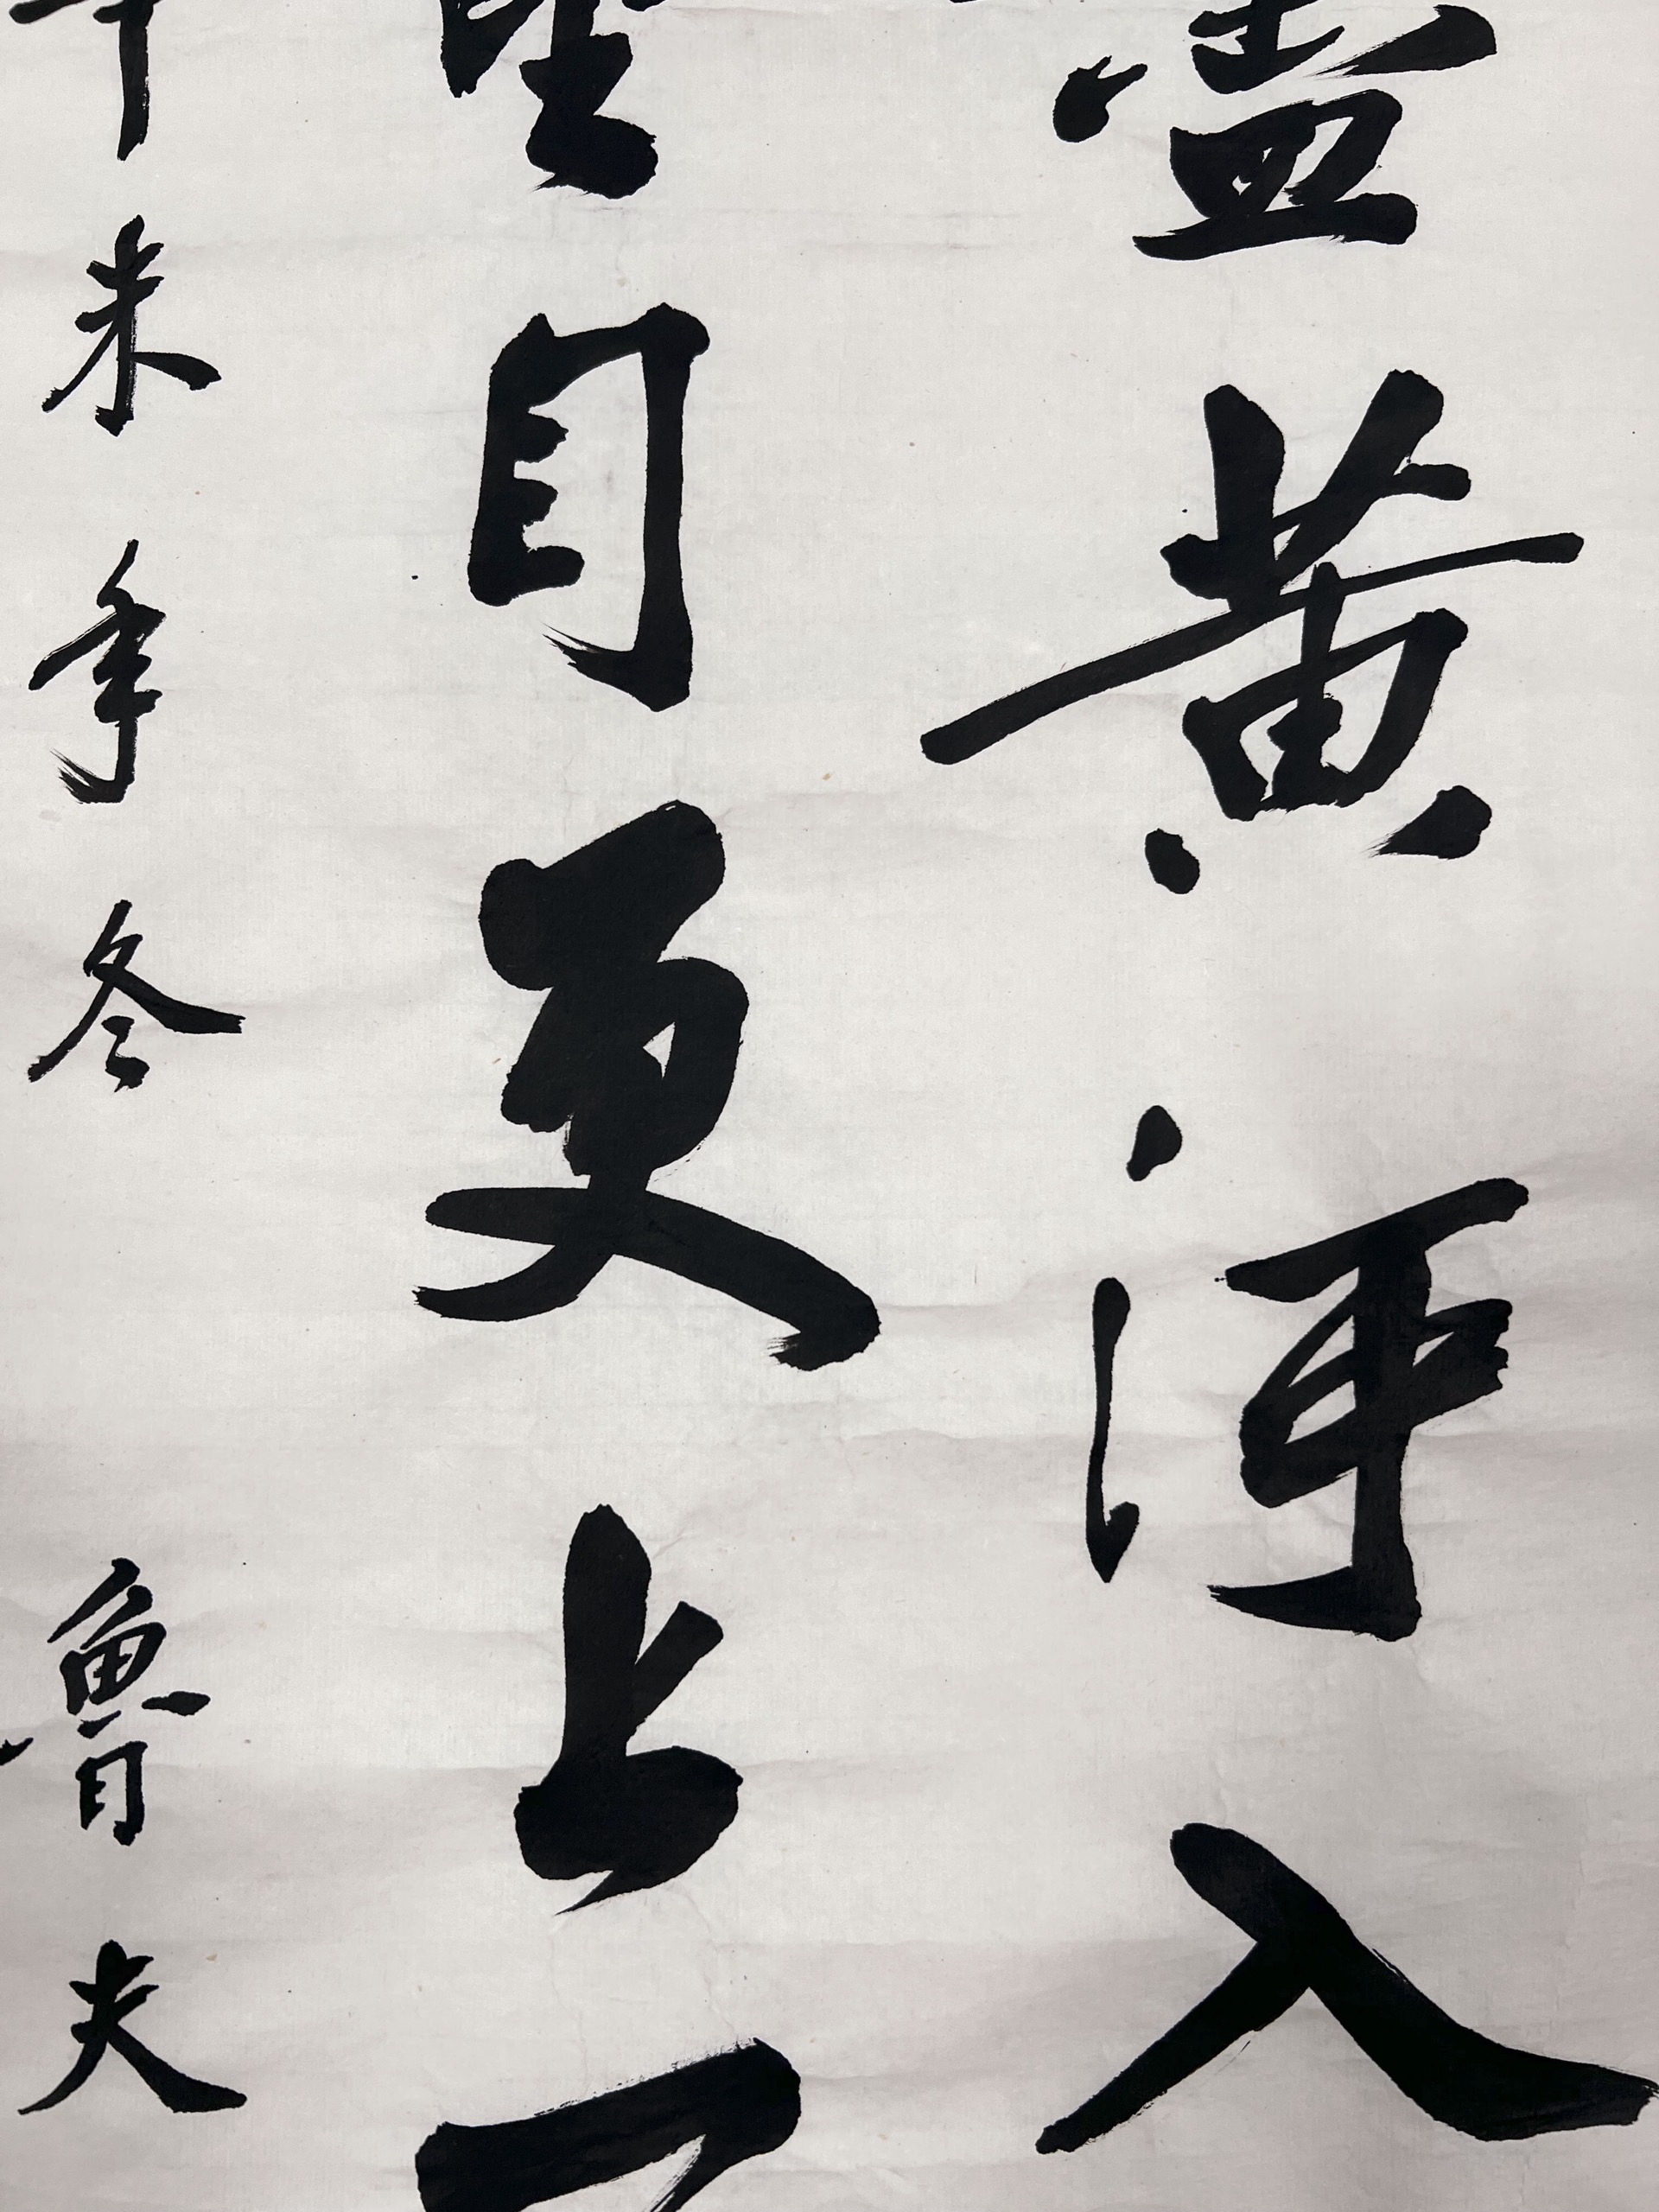 黄河入
目更上
未年冬 魯夫